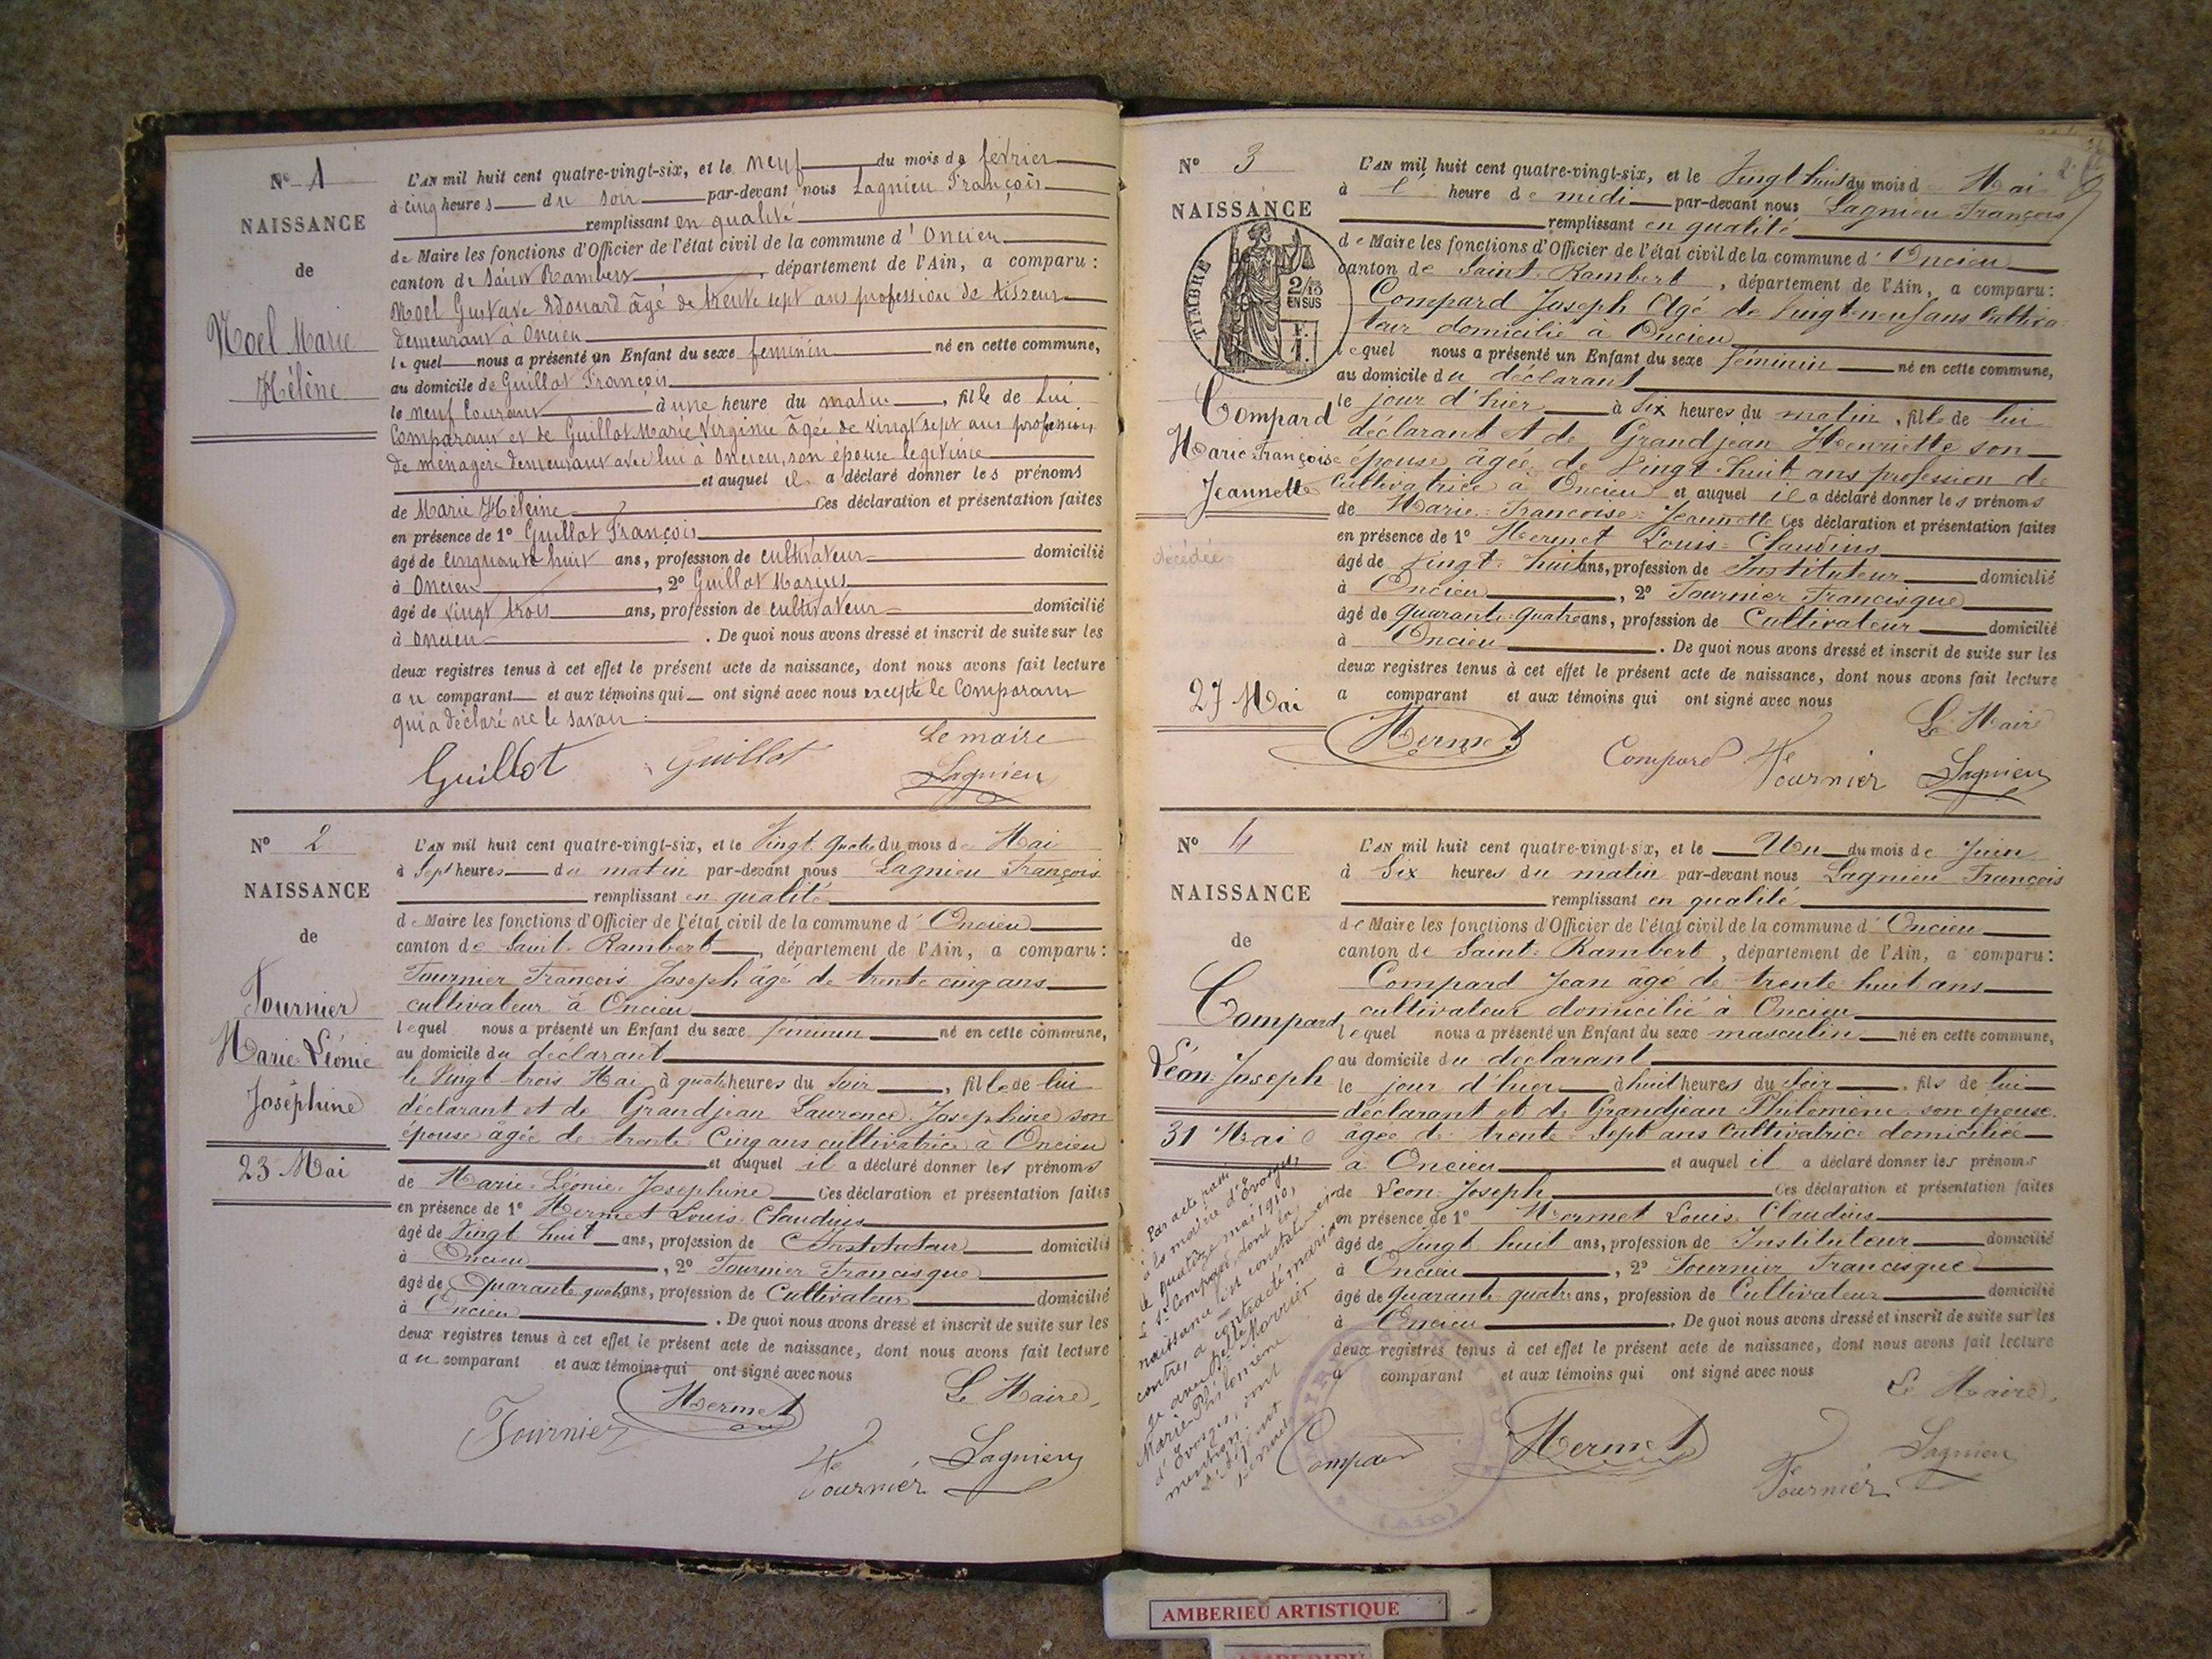 N° 1
NAISSANCE
de
Noel Marie
Hélène
L'AN mil huit cent quatre-vingt-six, et le neuf du mois de fevrier
à cinq heures du soir par-devant nous Lagnieu François
remplissant en qualité
de Maire les fonctions d'Officier de l'état civil de la commune d'Oncieu
canton de Saint Rambert, département de l'Ain, a comparu :
Noel Gustave Edouard âgé de trente sept ans profession de tisseur
demeurant à Oncieu
lequel nous a présenté un Enfant du sexe feminin né en cette commune,
au domicile de Guillot François
le neuf Courant à une heure du matin, fille de Lui
Comparant et de Guillot Marie Virginie âgée de vingt sept ans profession
de ménagère demeurant avec lui à Oncieu, son épouse legitime
et auquel il a déclaré donner les prénoms
de Marie Héleine Ces déclaration et présentation faites
en présence de 1° Guillot François
âgé de cinquante huit ans, profession de cultivateur domicilié
à Oncieu, 2° Guillot Marius
âgé de vingt trois ans, profession de cultivateur domicilié
à Oncieu. De quoi nous avons dressé et inscrit de suite sur les
deux registres tenus à cet effet le présent acte de naissance, dont nous avons fait lecture
au comparant et aux témoins qui ont signé avec nous excepté le Comparant
qui a déclaré ne le savoir
Le maire
Guillot Guillot Lagnieu
N° 2
NAISSANCE
de
Fournier
Marie-Léonie
Joséphine
23 Mai
L'AN mil huit cent quatre-vingt-six, et le Vingt quatre du mois de Mai
à Sept heures du matin par-devant nous Lagnieu François
remplissant en qualité
de Maire les fonctions d'Officier de l'état civil de la commune d'Oncieu
canton de Saint-Rambert, département de l'Ain, a comparu :
Fournier François Joseph âgé de trente cinq ans
cultivateur à Oncieu
lequel nous a présenté un Enfant du sexe féminin né en cette commune,
au domicile du déclarant
le Vingt-trois Mai à quatre heures du Soir, fille de lui
déclarant et de Grandjean Laurence Josephine son
épouse âgée de trente Cinq ans cultivatrice à Oncieu
et auquel il a déclaré donner les prénoms
de Marie-Léonie-Josephine Ces déclaration et présentation faites
en présence de 1° Hermet Louis-Claudius
âgé de Vingt huit ans, profession de Instituteur domicilié
à Oncieu, 2° Fournier Francisque
âgé de Quarante quatre ans, profession de Cultivateur domicilié
à Oncieu. De quoi nous avons dressé et inscrit de suite sur les
deux registres tenus à cet effet le présent acte de naissance, dont nous avons fait lecture
au comparant et aux témoins qui ont signé avec nous
Le Maire,
Fournier Hermet Fournier Lagnieu
N° 3
NAISSANCE
TIMBRE
2/10
EN SUS
Compard
Marie-Françoise
Jeannette
décédée
27 Mai
L'AN mil huit cent quatre-vingt-six, et le Vingt huit du mois de Mai
à heure de midi par-devant nous Lagnieu François
remplissant en qualité
de Maire les fonctions d'Officier de l'état civil de la commune d'Oncieu
canton de Saint-Rambert, département de l'Ain, a comparu :
Compard Joseph Agé de Vingt-neuf ans Cultiva-
teur domicilié à Oncieu
lequel nous a présenté un Enfant du sexe féminin né en cette commune,
au domicile du déclarant
le jour d'hier à Six heures du matin, fille de lui
déclarant et de Grandjean Henriette son
épouse âgée de Vingt-huit ans profession de
Cultivatrice à Oncieu et auquel il a déclaré donner les prénoms
de Marie-Francoise-Jeannette Ces déclaration et présentation faites
en présence de 1° Hermet Louis-Claudius
âgé de Vingt-huit ans, profession de Instituteur domicilié
à Oncieu, 2° Fournier Francisque
âgé de quarante-quatre ans, profession de Cultivateur domicilié
à Oncieu. De quoi nous avons dressé et inscrit de suite sur les
deux registres tenus à cet effet le présent acte de naissance, dont nous avons fait lecture
a comparant et aux témoins qui ont signé avec nous
Le Maire
Hermet Compard Fournier Lagnieu
N° 4
NAISSANCE
de
Compard
Léon-Joseph
31 Mai
Par acte passé
à la mairie d'Evosges,
le quatorze mai 1910,
le Sr Compard, dont la
naissance est constatée ci-
contre, a contracté mariage
avec Delle
Marie-Philomène
d'Evosges, dont
mention
L'AN mil huit cent quatre-vingt-six, et le Un du mois de Juin
à Six heures du matin par-devant nous Lagnieu François
remplissant en qualité
de Maire les fonctions d'Officier de l'état civil de la commune d'Oncieu
canton de Saint-Rambert, département de l'Ain, a comparu :
Compard Jean âgé de trente huit ans
cultivateur domicilié à Oncieu
lequel nous a présenté un Enfant du sexe masculin né en cette commune,
au domicile du déclarant
le jour d'hier à huit heures du Soir, fils de lui
déclarant et de Grandjean Philomène son épouse
âgée de trente-Sept ans Cultivatrice domiciliée
à Oncieu et auquel il a déclaré donner les prénoms
de Leon-Joseph Ces déclaration et présentation faites
en présence de 1° Hermet Louis Claudius
âgé de Vingt huit ans, profession de Instituteur domicilié
à Oncieu, 2° Fournier Francisque
âgé de quarante quatre ans, profession de Cultivateur domicilié
à Oncieu. De quoi nous avons dressé et inscrit de suite sur les
deux registres tenus à cet effet le présent acte de naissance, dont nous avons fait lecture
a comparant et aux témoins qui ont signé avec nous
Le Maire,
Compard Hermet Fournier Lagnieu
AMBERIEU ARTISTIQUE
AMBERIEU